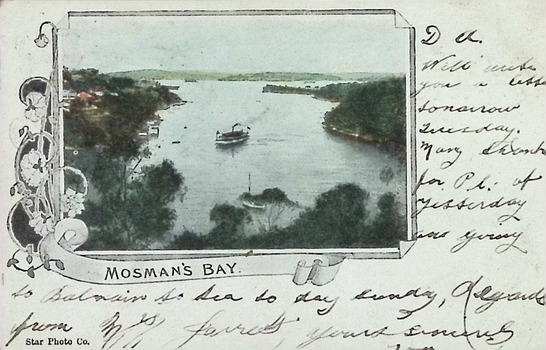 D A.
Will write
you a letter
tomorrow
Tuesday.
Many thanks
for P.C. of
yesterday
was going
MOSMAN'S BAY.
to Balmain St. to day Sunday, Regards
from Jarrett, yours sincerely
Star Photo Co.